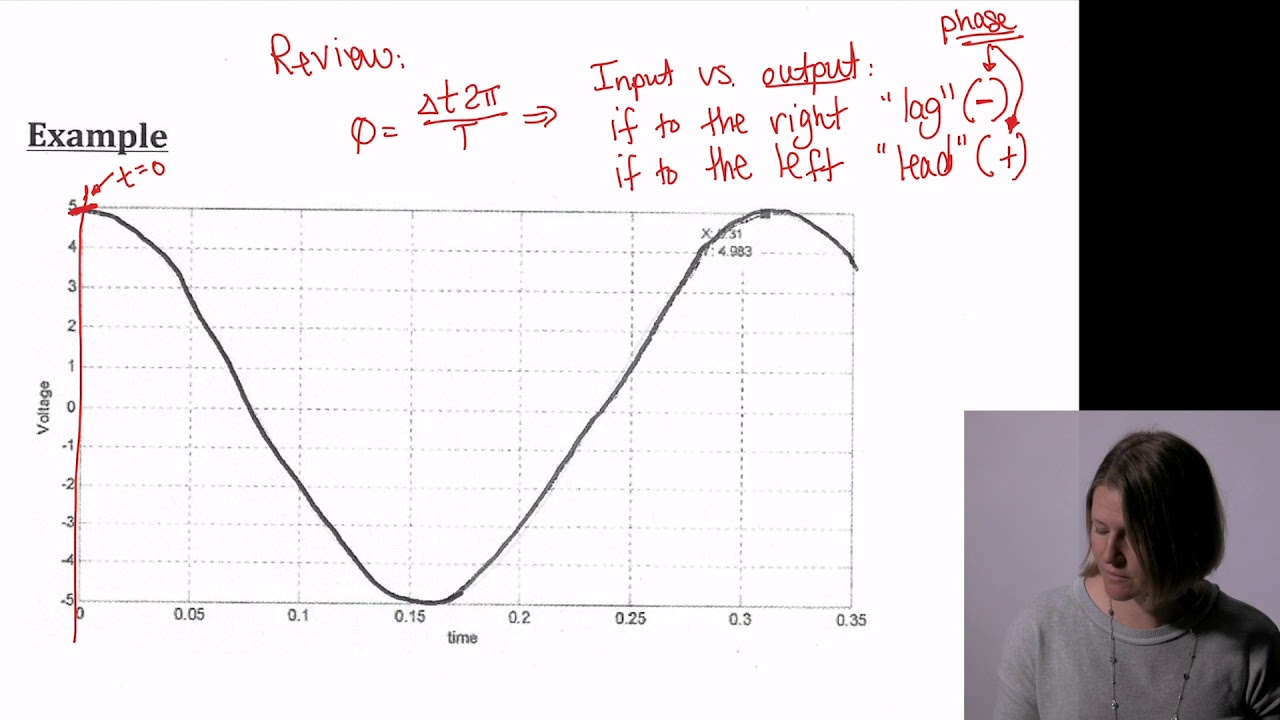 phase
Review:
Input vs. output:
φ = Δt 2π / T ⇒
if to the right "lag" (-)
if to the left "lead" (+)
Example
t=0
5
4
3
2
1
0
-1
-2
-3
-4
-5
Voltage
4.983
0 0.05 0.1 0.15 0.2 0.25 0.3 0.35
time